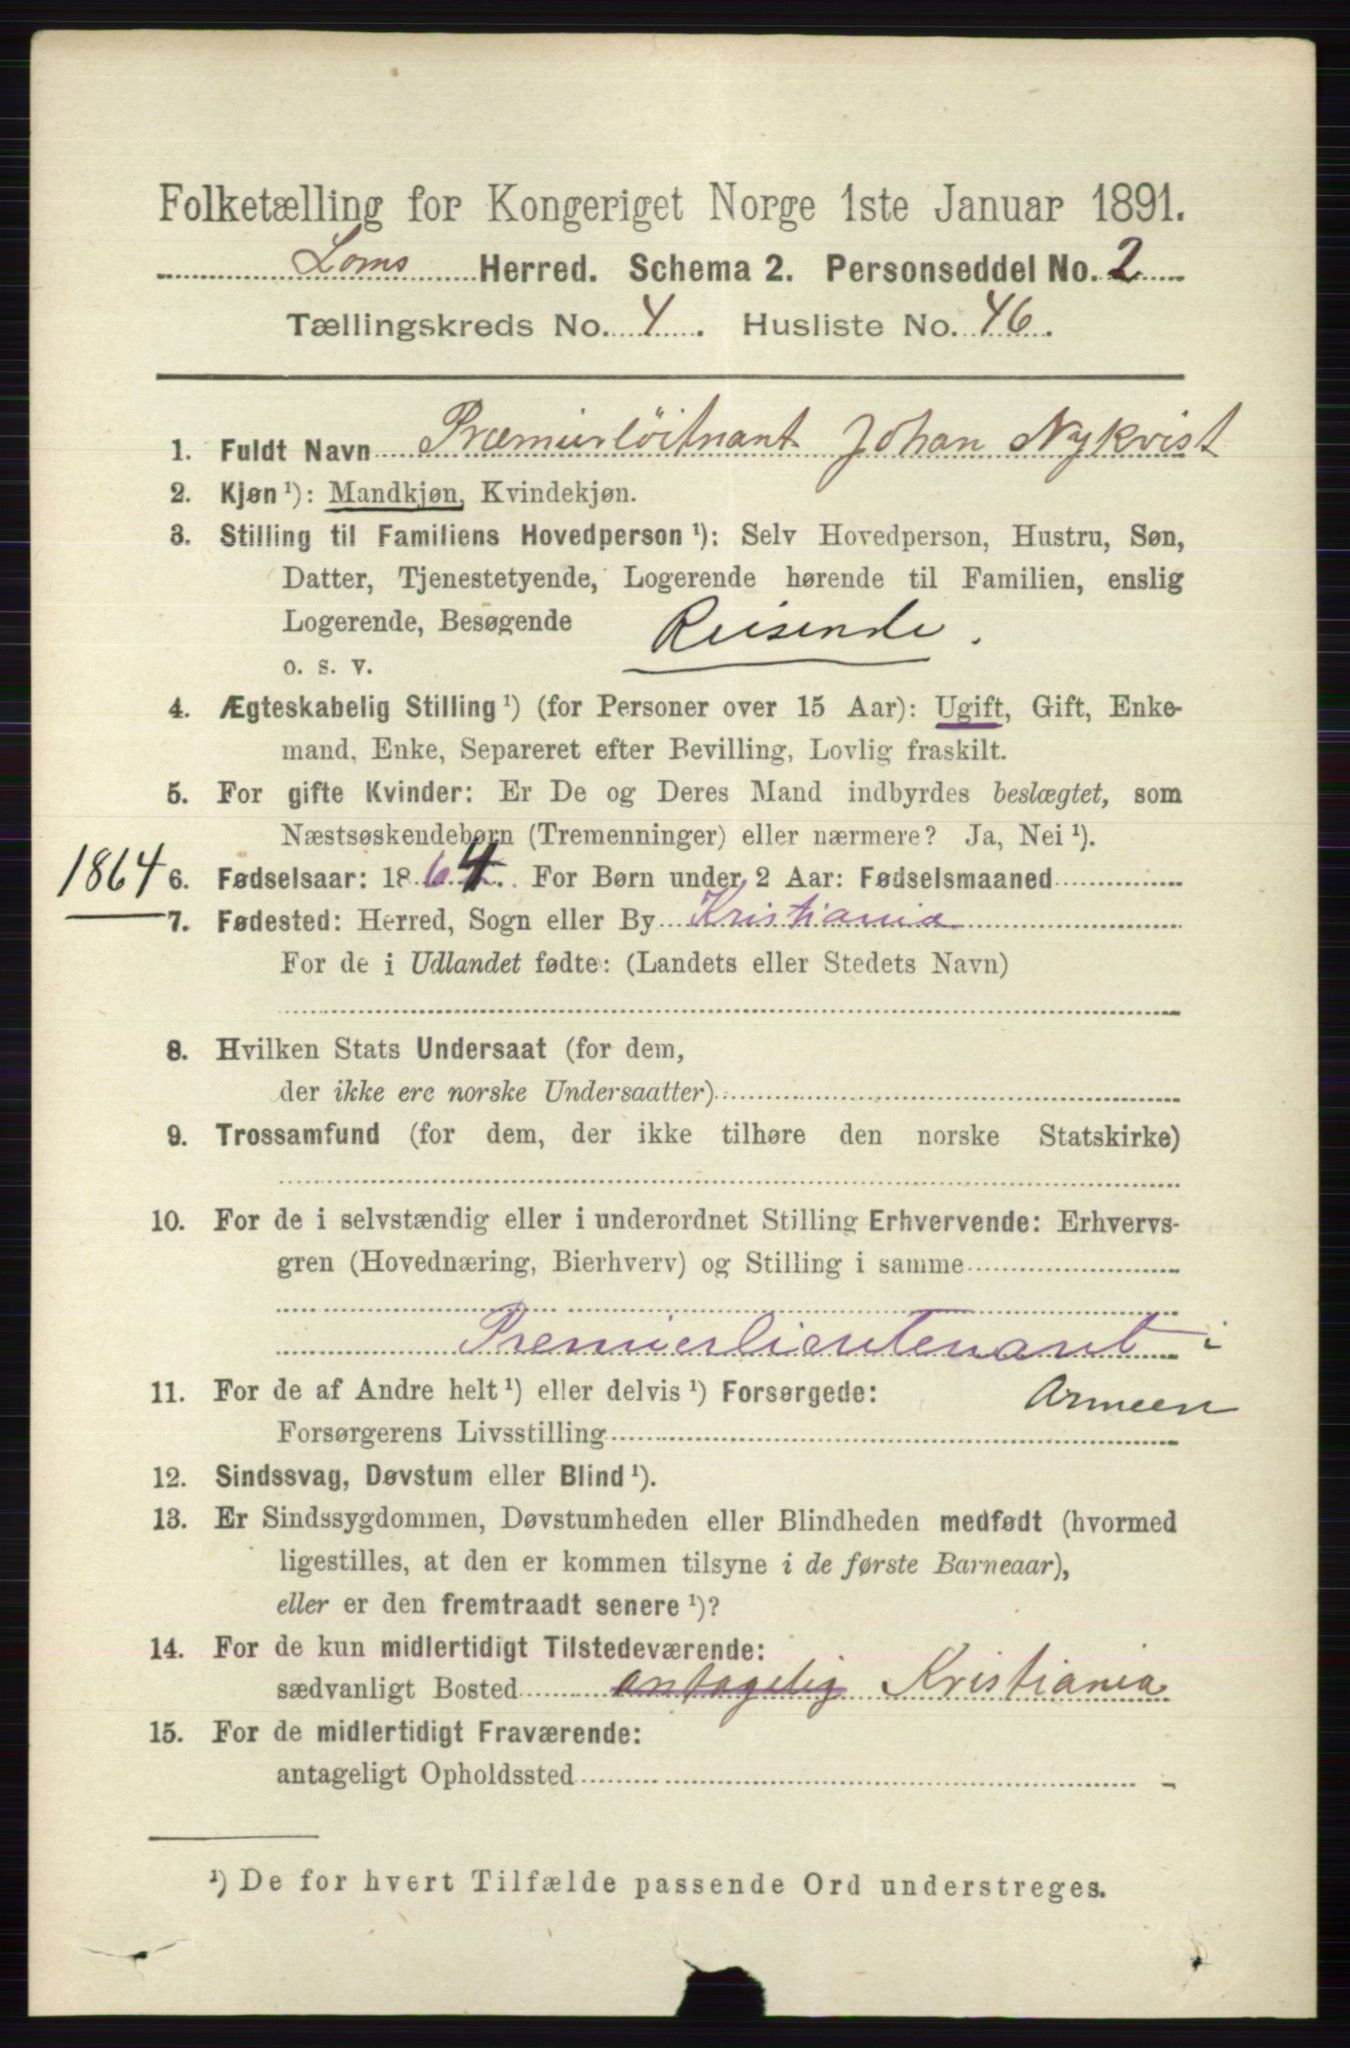 Folketælling for Kongeriget Norge 1ste Januar 1891.
Loms Herred. Schema 2. Personseddel No. 2
Tællingskreds No. 4. Husliste No. 46.
1. Fuldt Navn Præmierløitnant Johan Nykvist
2. Kjøn ¹): Mandkjøn, Kvindekjøn.
3. Stilling til Familiens Hovedperson ¹): Selv Hovedperson, Hustru, Søn,
Datter, Tjenestetyende, Logerende hørende til Familien, enslig
Logerende, Besøgende Reisende.
o. s. v.
4. Ægteskabelig Stilling ¹) (for Personer over 15 Aar): Ugift, Gift, Enke-
mand, Enke, Separeret efter Bevilling, Lovlig fraskilt.
5. For gifte Kvinder: Er De og Deres Mand indbyrdes beslægtet, som
Næstsøskendebørn (Tremenninger) eller nærmere? Ja, Nei ¹).
1864 6. Fødselsaar: 1864. For Børn under 2 Aar: Fødselsmaaned
7. Fødested: Herred, Sogn eller By Kristiania
For de i Udlandet fødte: (Landets eller Stedets Navn)
8. Hvilken Stats Undersaat (for dem,
der ikke ere norske Undersaatter)
9. Trossamfund (for dem, der ikke tilhøre den norske Statskirke)
10. For de i selvstændig eller i underordnet Stilling Erhvervende: Erhvervs-
gren (Hovednæring, Bierhverv) og Stilling i samme
Premierlieutenant i
11. For de af Andre helt ¹) eller delvis ¹) Forsørgede: Armeen
Forsørgerens Livsstilling
12. Sindssvag, Døvstum eller Blind ¹).
13. Er Sindssygdommen, Døvstumheden eller Blindheden medfødt (hvormed
ligestilles, at den er kommen tilsyne i de første Barneaar),
eller er den fremtraadt senere ¹)?
14. For de kun midlertidigt Tilstedeværende:
sædvanligt Bosted antagelig Kristiania
15. For de midlertidigt Fraværende:
antageligt Opholdssted
¹) De for hvert Tilfælde passende Ord understreges.